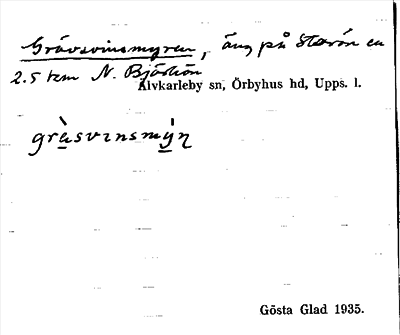 Grävsvinsmyren, äng på Starön ca
2.5 km N. Björkön
Älvkarleby sn, Örbyhus hd, Upps. l.
grä̀svɩnsmy̍n
Gösta Glad 1935.